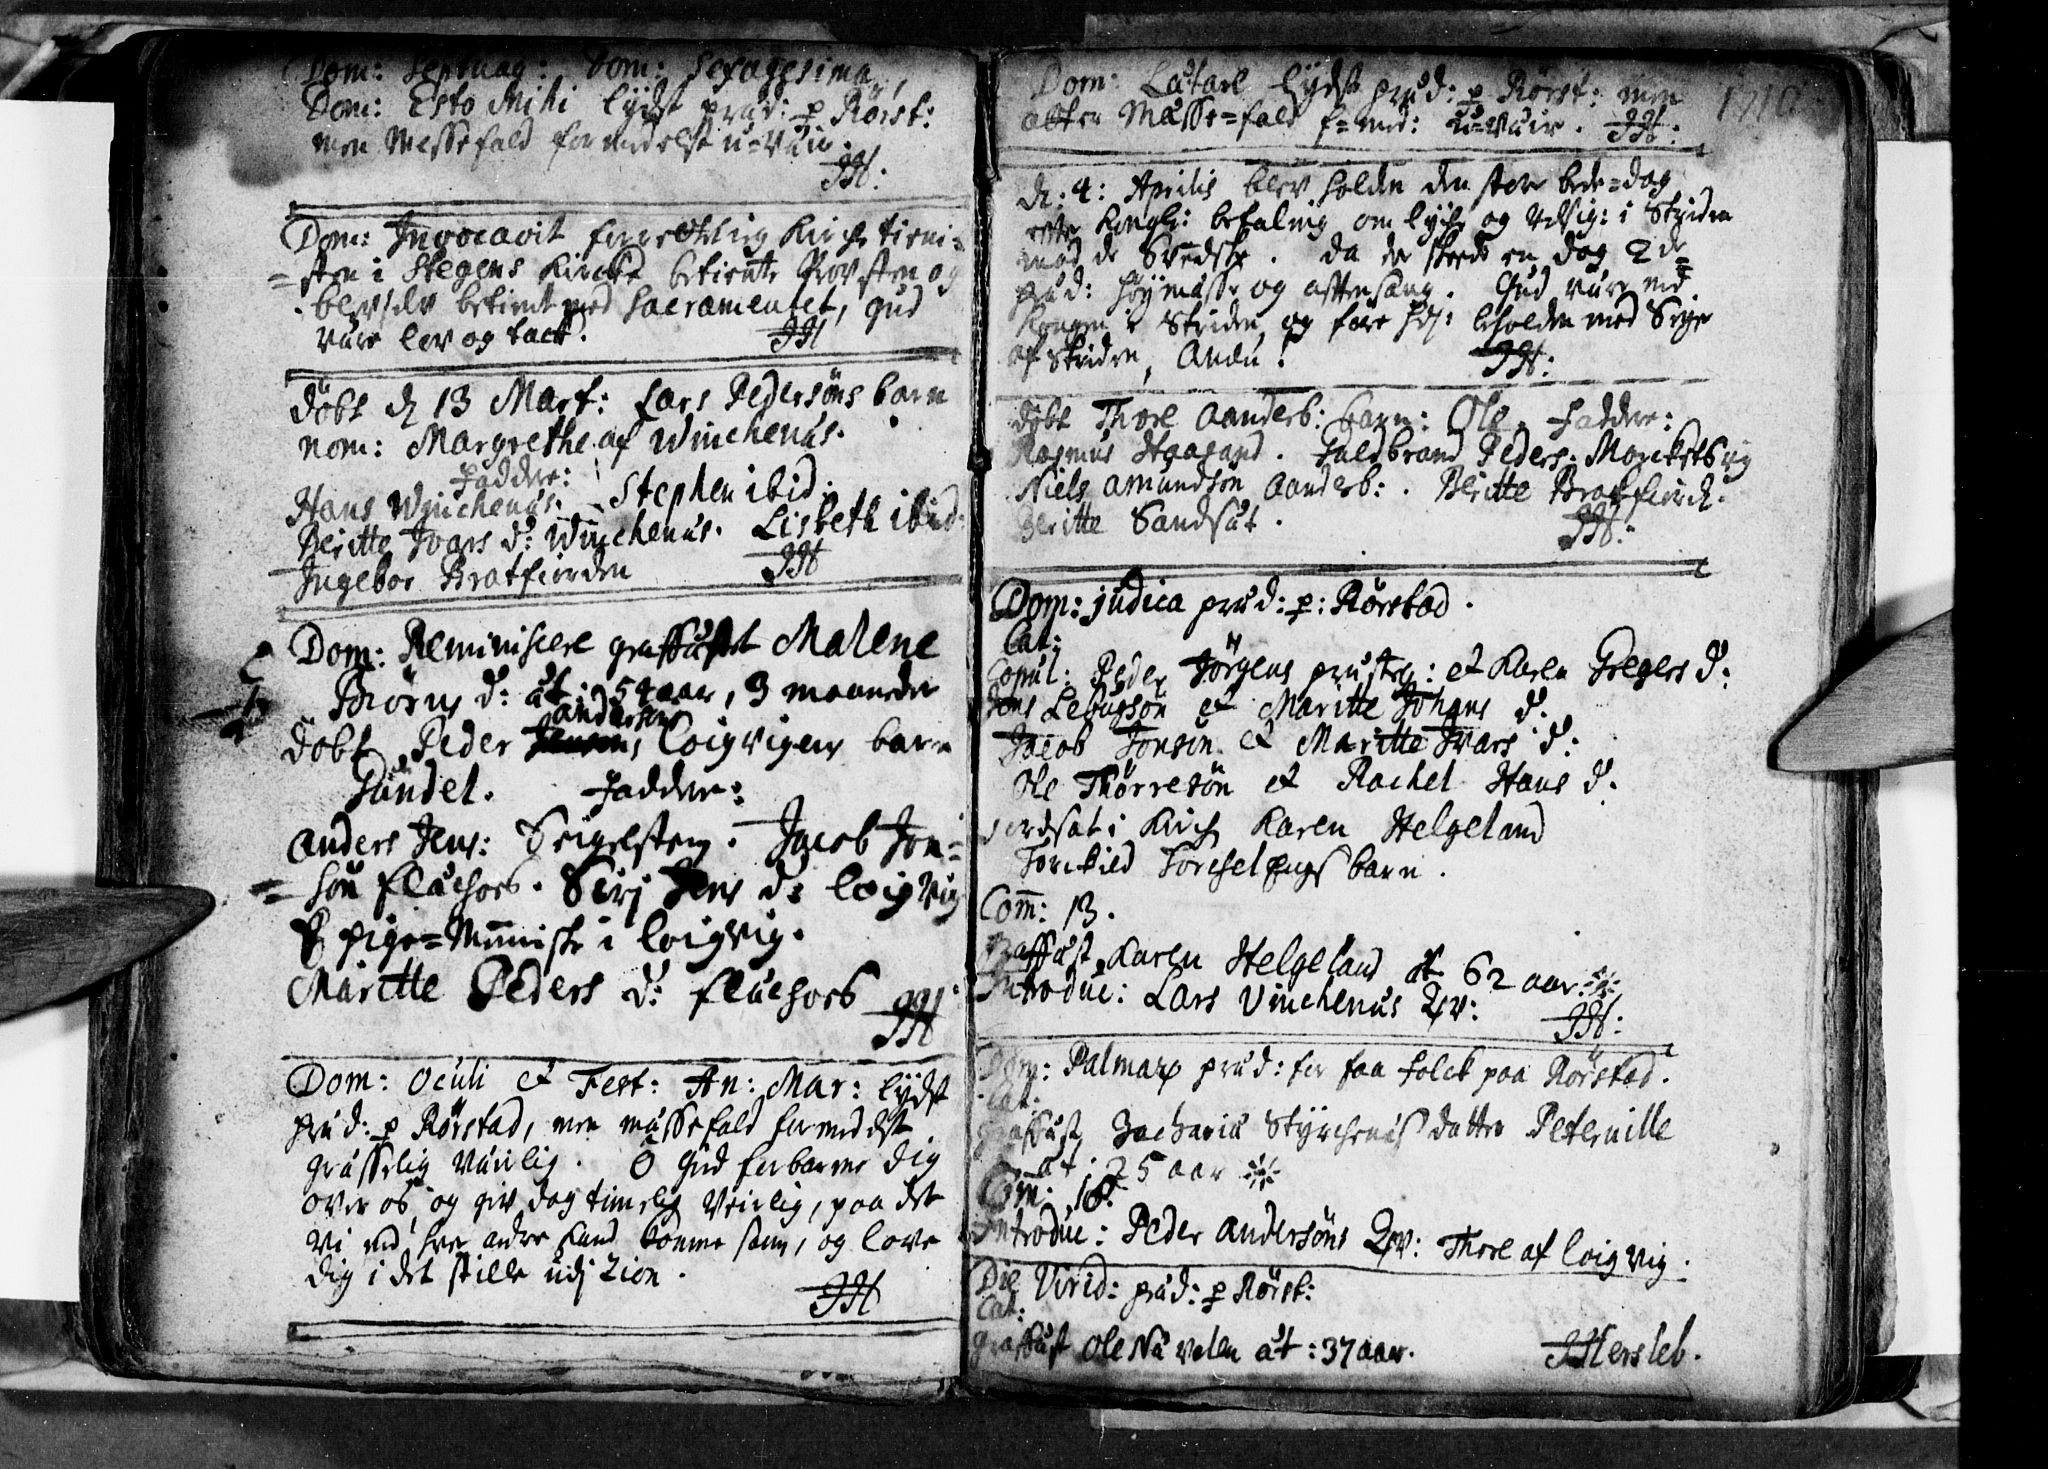 Dom: Septuag: Dom: Sexagesima,
Dom: Esto Mihi lydst præd: p Rörst:
men Messefald formedelst u=vær.
JH:
Dom: Invocavit forrettlig Kirche tieni=
=sten i Stegens Kircke betiente Provsten og
blev selv betient med Sacramentet, Gud
være lov og tack.
JH
Döbt d 13 Mart: Lars Pedersöns barn
nom: Margrethe af Winchenæs.
Faddre:
Hans Winchenæs. Stephen ibid.
Beritte Ivars d: Winchenæs. Lisbeth ibid:
Ingebor Bratfiorden
JH
Dom: Reminiscere graffæst Malene
Biörns d: æt: 54 aar, 3 maaneder
andersöns
Döbt Peder Löigvigen barn
Gündel. Faddre:
Anders Jens: Seigelsteen. Jacob Jon=
=sön Fluehoeb. Siri Jens d: Löigvig
E pige=Menniske i Löigvig.
Maritte Peders d: Fluehoeb
JH
Dom: Oculi et Fest: An: Mar: lydst
præd: p Rörstad, men mæssefald formedelst
græsselig Væirlig. O Gud forbarme dig
over os, og giv dog timelig Veirlig, paa det
vi med hver andre kand komme sam, og love
dig i det stille udj Zion.
JH
Dom: Lætare lydst præd: p Rörst: men
atter Mæsse=fald f=med: u=vær. JH:
1710
d: 4: Aprilis blev holden den store bede=dag
efter Kongl: befaling om lyche og Velsig: i Striden
mod de Svedske. da der skeede en dag 2de
præd: höymæsse og afftensang. Gud være med
Kongen i Striden, og före Hs: beholden med Seyer
af Striden, Amen.
JH:
Döbt Thore Aanderb: barn: Ole. Faddre:
Rasmus Haagand. Guldbrand Peders: Morcksvig
Niels Amundsön Aanderb: . Beritte Bratfiord.
Beritte Sandsæt.
JH:
Dom: Judica præd: p: Rörstad.
Cat:
Copul: Peder Jörgens præsteg: et Karen Gregers d:
Jens Lebusson et Maritte Johans d.
Jacob Jonsön et Maritte Ivars d:
Ole Thörresön et Rachel Hans d.
jordsat i Kirch Karen Helgeland
Torckild barn.
Com: 13.
Graffæst Karen Helgeland æt 62 aar
Introduc: Lars Vinchenæs Qv:
JH:
Dom: Palmar præd: for faa folck paa Rörstad.
Cat:
Graffæst Zacharia Styrchenæs datter Peternille
æt: 25 aar
Com: 18.
Introduc: Peder Andersöns Qv: Thore af Löigvig.
Die Virid: præd: p Rörst:
Cat:
Graffæst Ole Næ velen æt: 37 aar.
JHersleb.